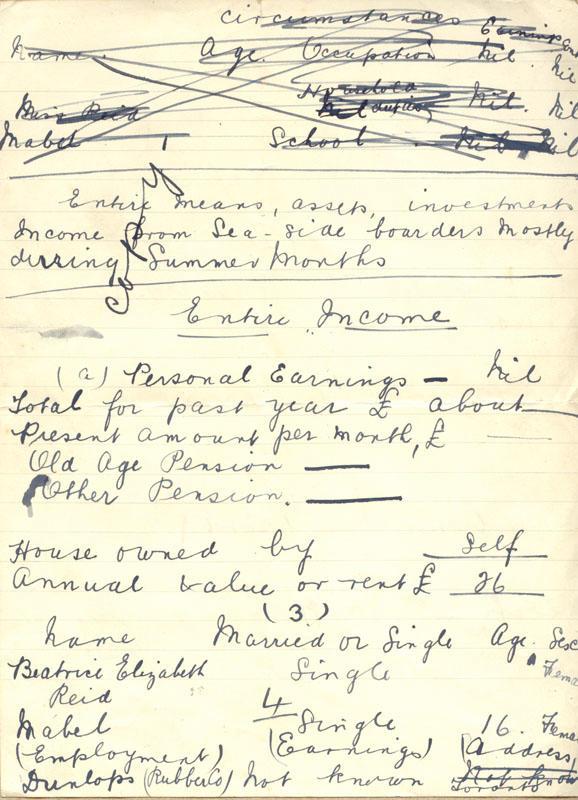 Circumstances
Name Age. Occupation Nil Earnings and
Nil
Miss Reid Household duties Nil. Nil
Mabel 1 School. Nil Nil
Entire means, assets, investments
Income from Sea-side boarders Mostly
durring Summer Months
Copy
Entire Income
(a) Personal Earnings — Nil
Total for past year £ about —
Present Amount per month, £ —
Old Age Pension —
Other Pension. —
House owned by Self
Annual value or rent £ 26
(3)
Name Married or Single Age. Sex
Beatrice Elizabeth Single Fema
Reid
4
Mabel Single 16. Fema
(Employment) (Earnings) (Address)
Dunlops (Rubber Co) Not known Not know
Toronto